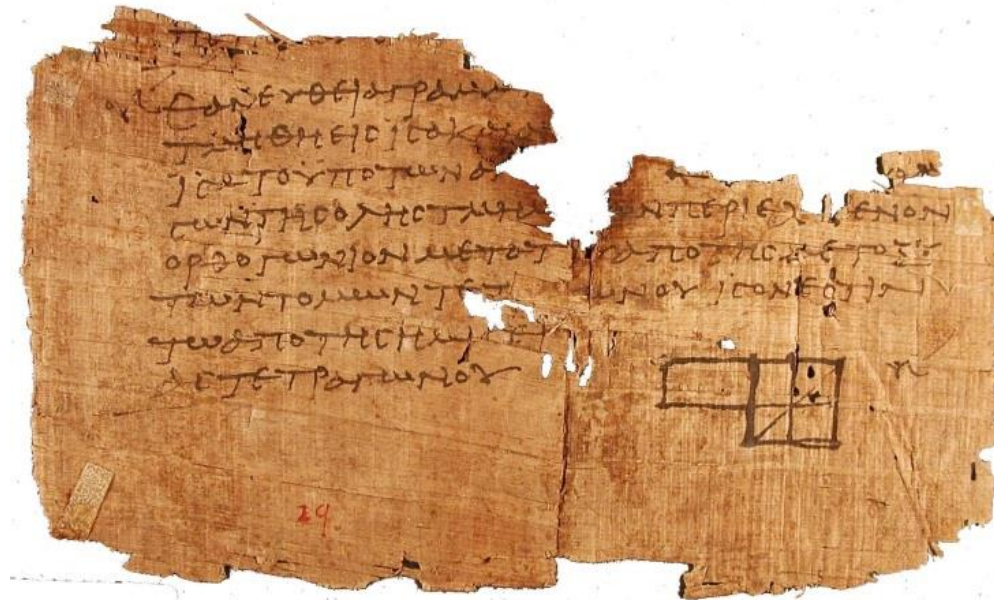 ΕΑΝ ΕΥΘΕΙΑ ΓΡΑΜΜ
ΤΜΗΘΗ ΕΙϹ ΙϹΑ ΚΑΙ ΑΝ
ΙϹΑ ΤΟ ΥΠΟ ΤΩΝ Α
ΙϹΩΝ ΤΗϹ ΟΛΗϹ ΤΜΗΜ ΩΝ ΠΕΡΙΕΧΟΜΕΝΟΝ
ΟΡΘΟΓΩΝΙΟΝ ΜΕΤΑ Τ ΑΠΟ ΤΗϹ ΜΕΤΟΞΥ
ΤΩΝ ΤΟΜΩΝ ΤΕΤ ΩΝΟΥ ΙϹΟΝ ΕϹΤΙΝ
ΤΩ ΑΠΟ ΤΗϹ ΗΜΙϹΕΙ
ΑϹ ΤΕΤΡΑΓΩΝΟΥ
29